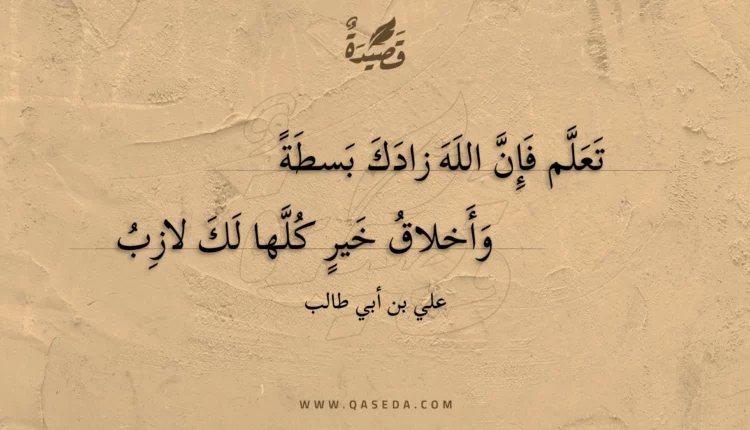 قَصِيدَةٌ
تَعَلَّم فَإِنَّ اللَهَ زادَكَ بَسطَةً
وَأَخلاقُ خَيرٍ كُلَّها لَكَ لازِبُ
علي بن أبي طالب
WWW.QASEDA.COM